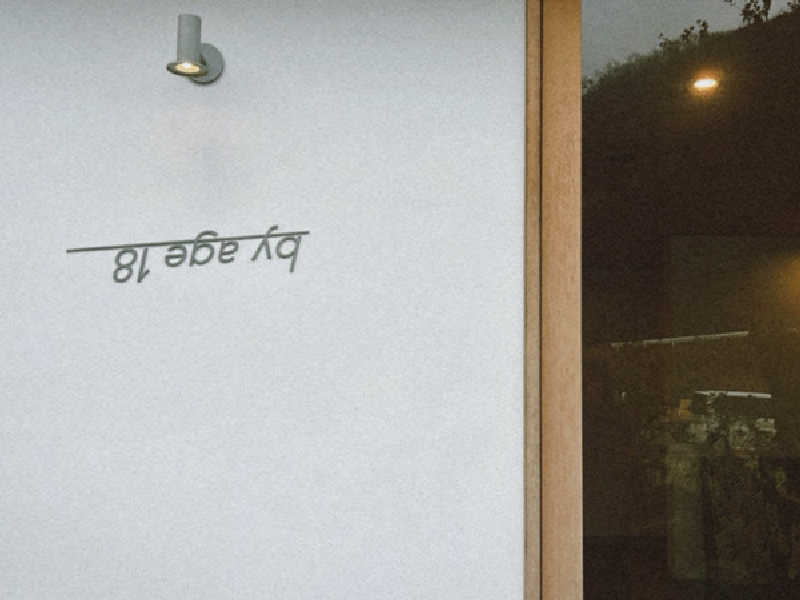 by age 18